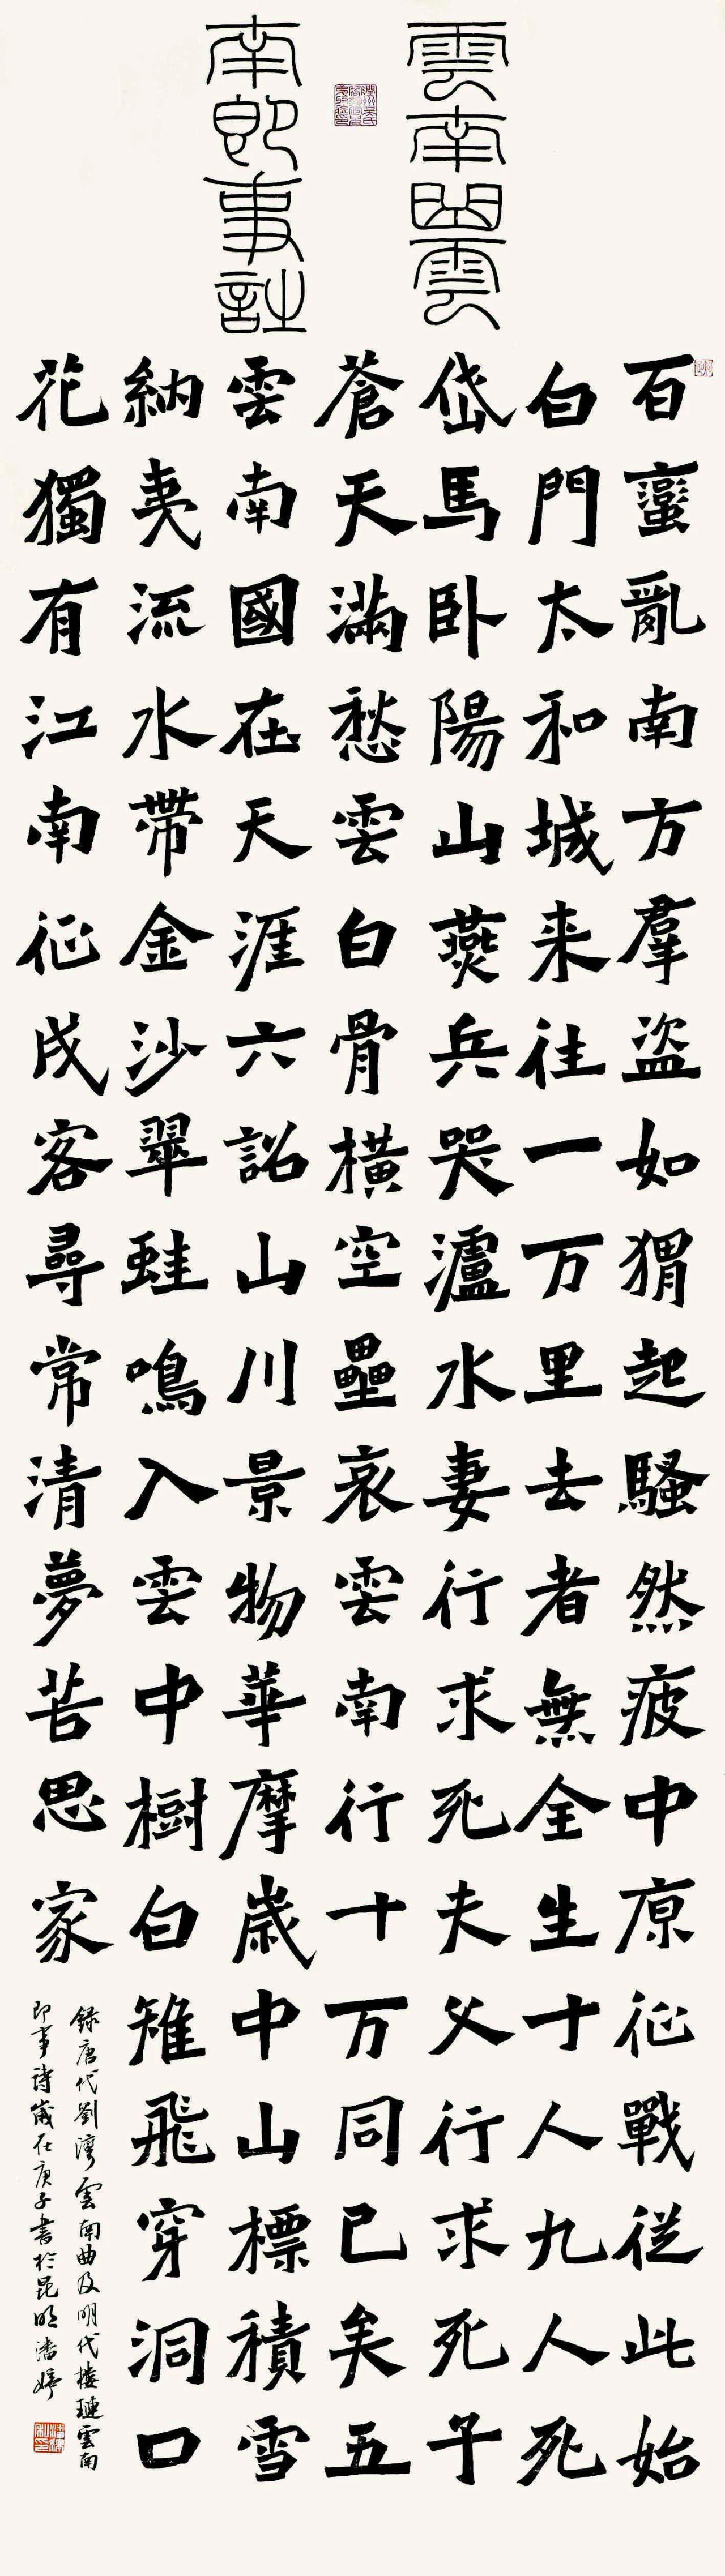 雲南曲雲
南即事詩
百蠻亂南方羣盜如猬起騷然疲中原征戰從此始
白門太和城来往一万里去者無全生十人九人死
岱馬卧陽山燕兵哭瀘水妻行求死夫父行求死子
蒼天滿愁雲白骨横空壘哀雲南行十万同已矣五
雲南國在天涯六詔山川景物華摩歲中山標積雪
納夷流水帶金沙翠蛙鳴入雲中樹白雉飛穿洞口
花獨有江南征戍客尋常清夢苦思家
録唐代劉灣雲南曲及明代樓璉雲南
即事詩歲在庚子書於昆明潘婷